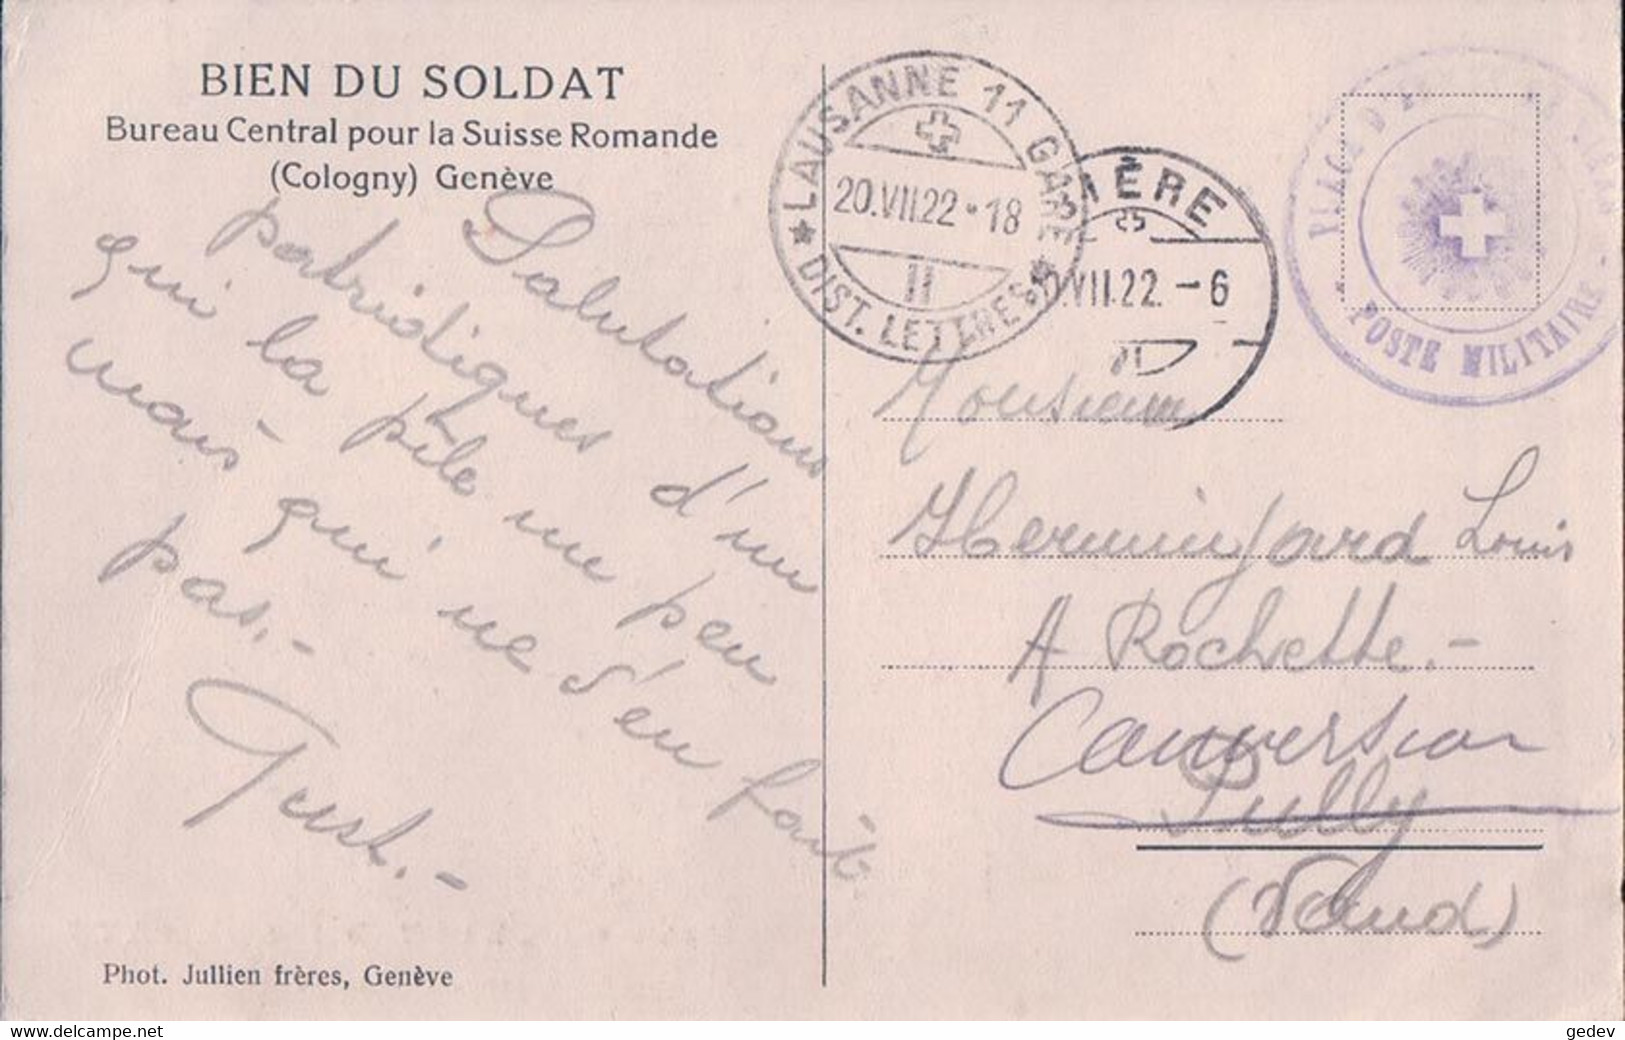 BIEN DU SOLDAT
Bureau Central pour la Suisse Romande
(Cologny) Genève
Salutations
patriotiques d'un
qui la pile un peu
mais qui ne s'en fait
pas.-
Gust.-
Phot. Jullien frères, Genève
LAUSANNE 11 GARE
20.VII.22-18
II
DIST. LETTRES
IÈRE
VII.22.-6
PLACE D'
POSTE MILITAIRE
Monsieur
Herminjard Louis
A Rochette.-
Conversion
Pully
(Vaud)
gedev
www.delcampe.net